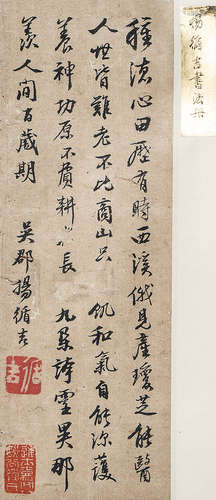 楊循吉書法冊
種德心田歷有時西溪俄見產瓊芝能醫
人世皆難老不比商山只飢和氣自能護
養神功原不費耕長九誇靈異那
羨人間百歲期 吳郡揚循吉
循吉